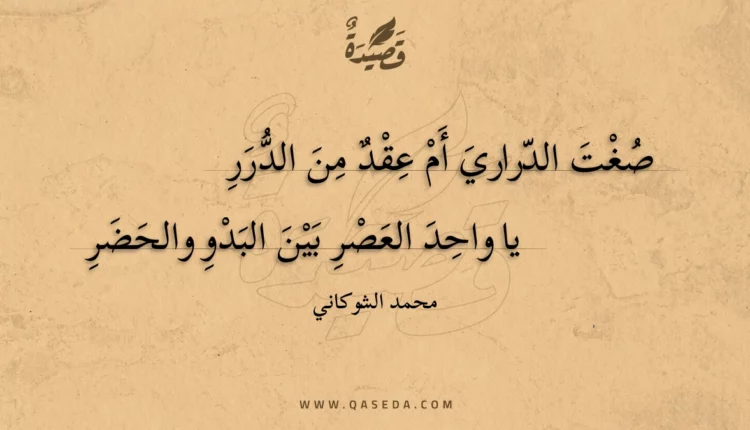 قَصِيدَةٌ
صُغْتَ الدّراريَ أَمْ عِقْدٌ مِنَ الدُّرَرِ
يا واحِدَ العَصْرِ بَيْنَ البَدْوِ والحَضَرِ
محمد الشوكاني
WWW.QASEDA.COM